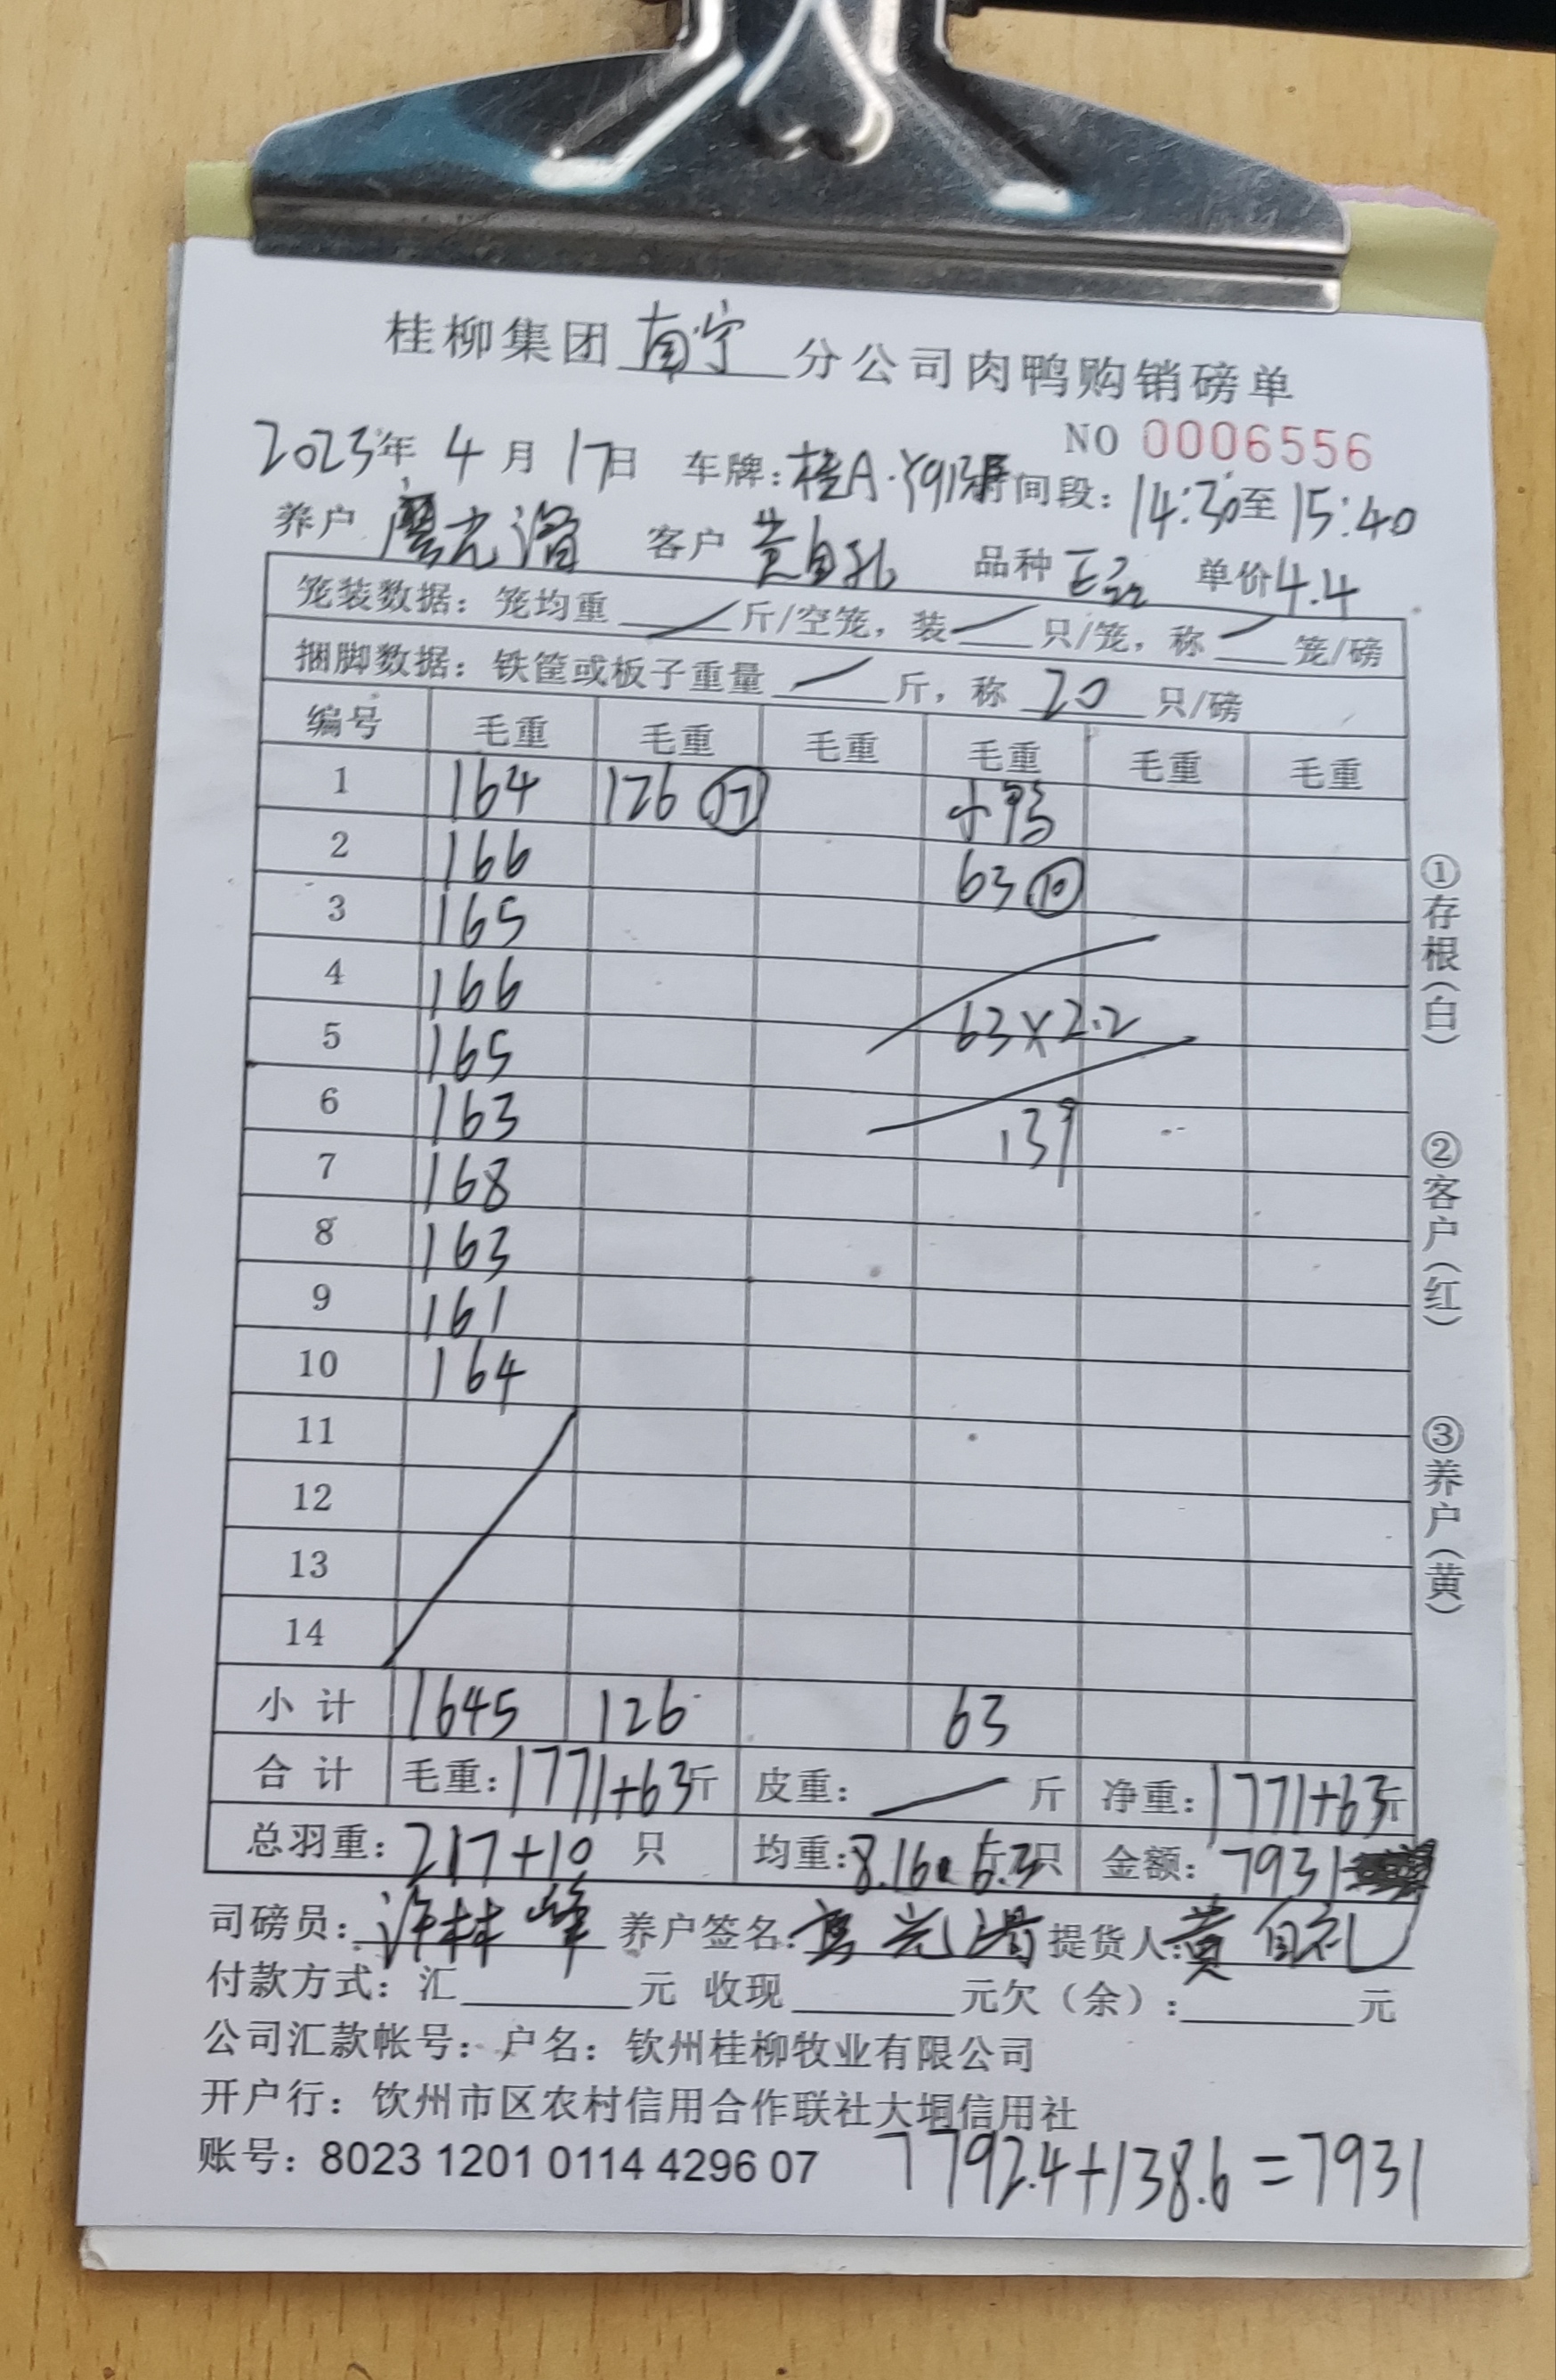 桂柳集团南宁分公司肉鸭购销磅单
NO 0006556
2023年 4月 17日 车牌:桂A·Y91 时间段:14:30至15:40
养户 光 客户 黄自礼 品种 单价4.4
笼装数据:笼均重 / 斤/空笼,装 / 只/笼,称 / 笼/磅
捆脚数据:铁筐或板子重量 / 斤,称 20 只/磅
编号 毛重 毛重 毛重 毛重 毛重 毛重
1 164 126 ⑰ 小鸭
2 166 63 ⑩
3 165
4 166 63×2.2
5 165
6 163 139
7 168
8 163
9 161
10 164
11
12
13
14
小计 1645 126 63
合计 毛重:1771+63斤 皮重: / 斤 净重:1771+63斤
总羽重:217+10 只 均重:8.16 6.3斤/只 金额:7931
司磅员:许林峰 养户签名: 光 提货人:黄自礼
付款方式:汇 元 收现 元欠(余): 元
公司汇款帐号:户名:钦州桂柳牧业有限公司
开户行:饮州市区农村信用合作联社大垌信用社
账号:8023 1201 0114 4296 07
7792.4+138.6=7931
①存根(白)
②客户(红)
③养户(黄)